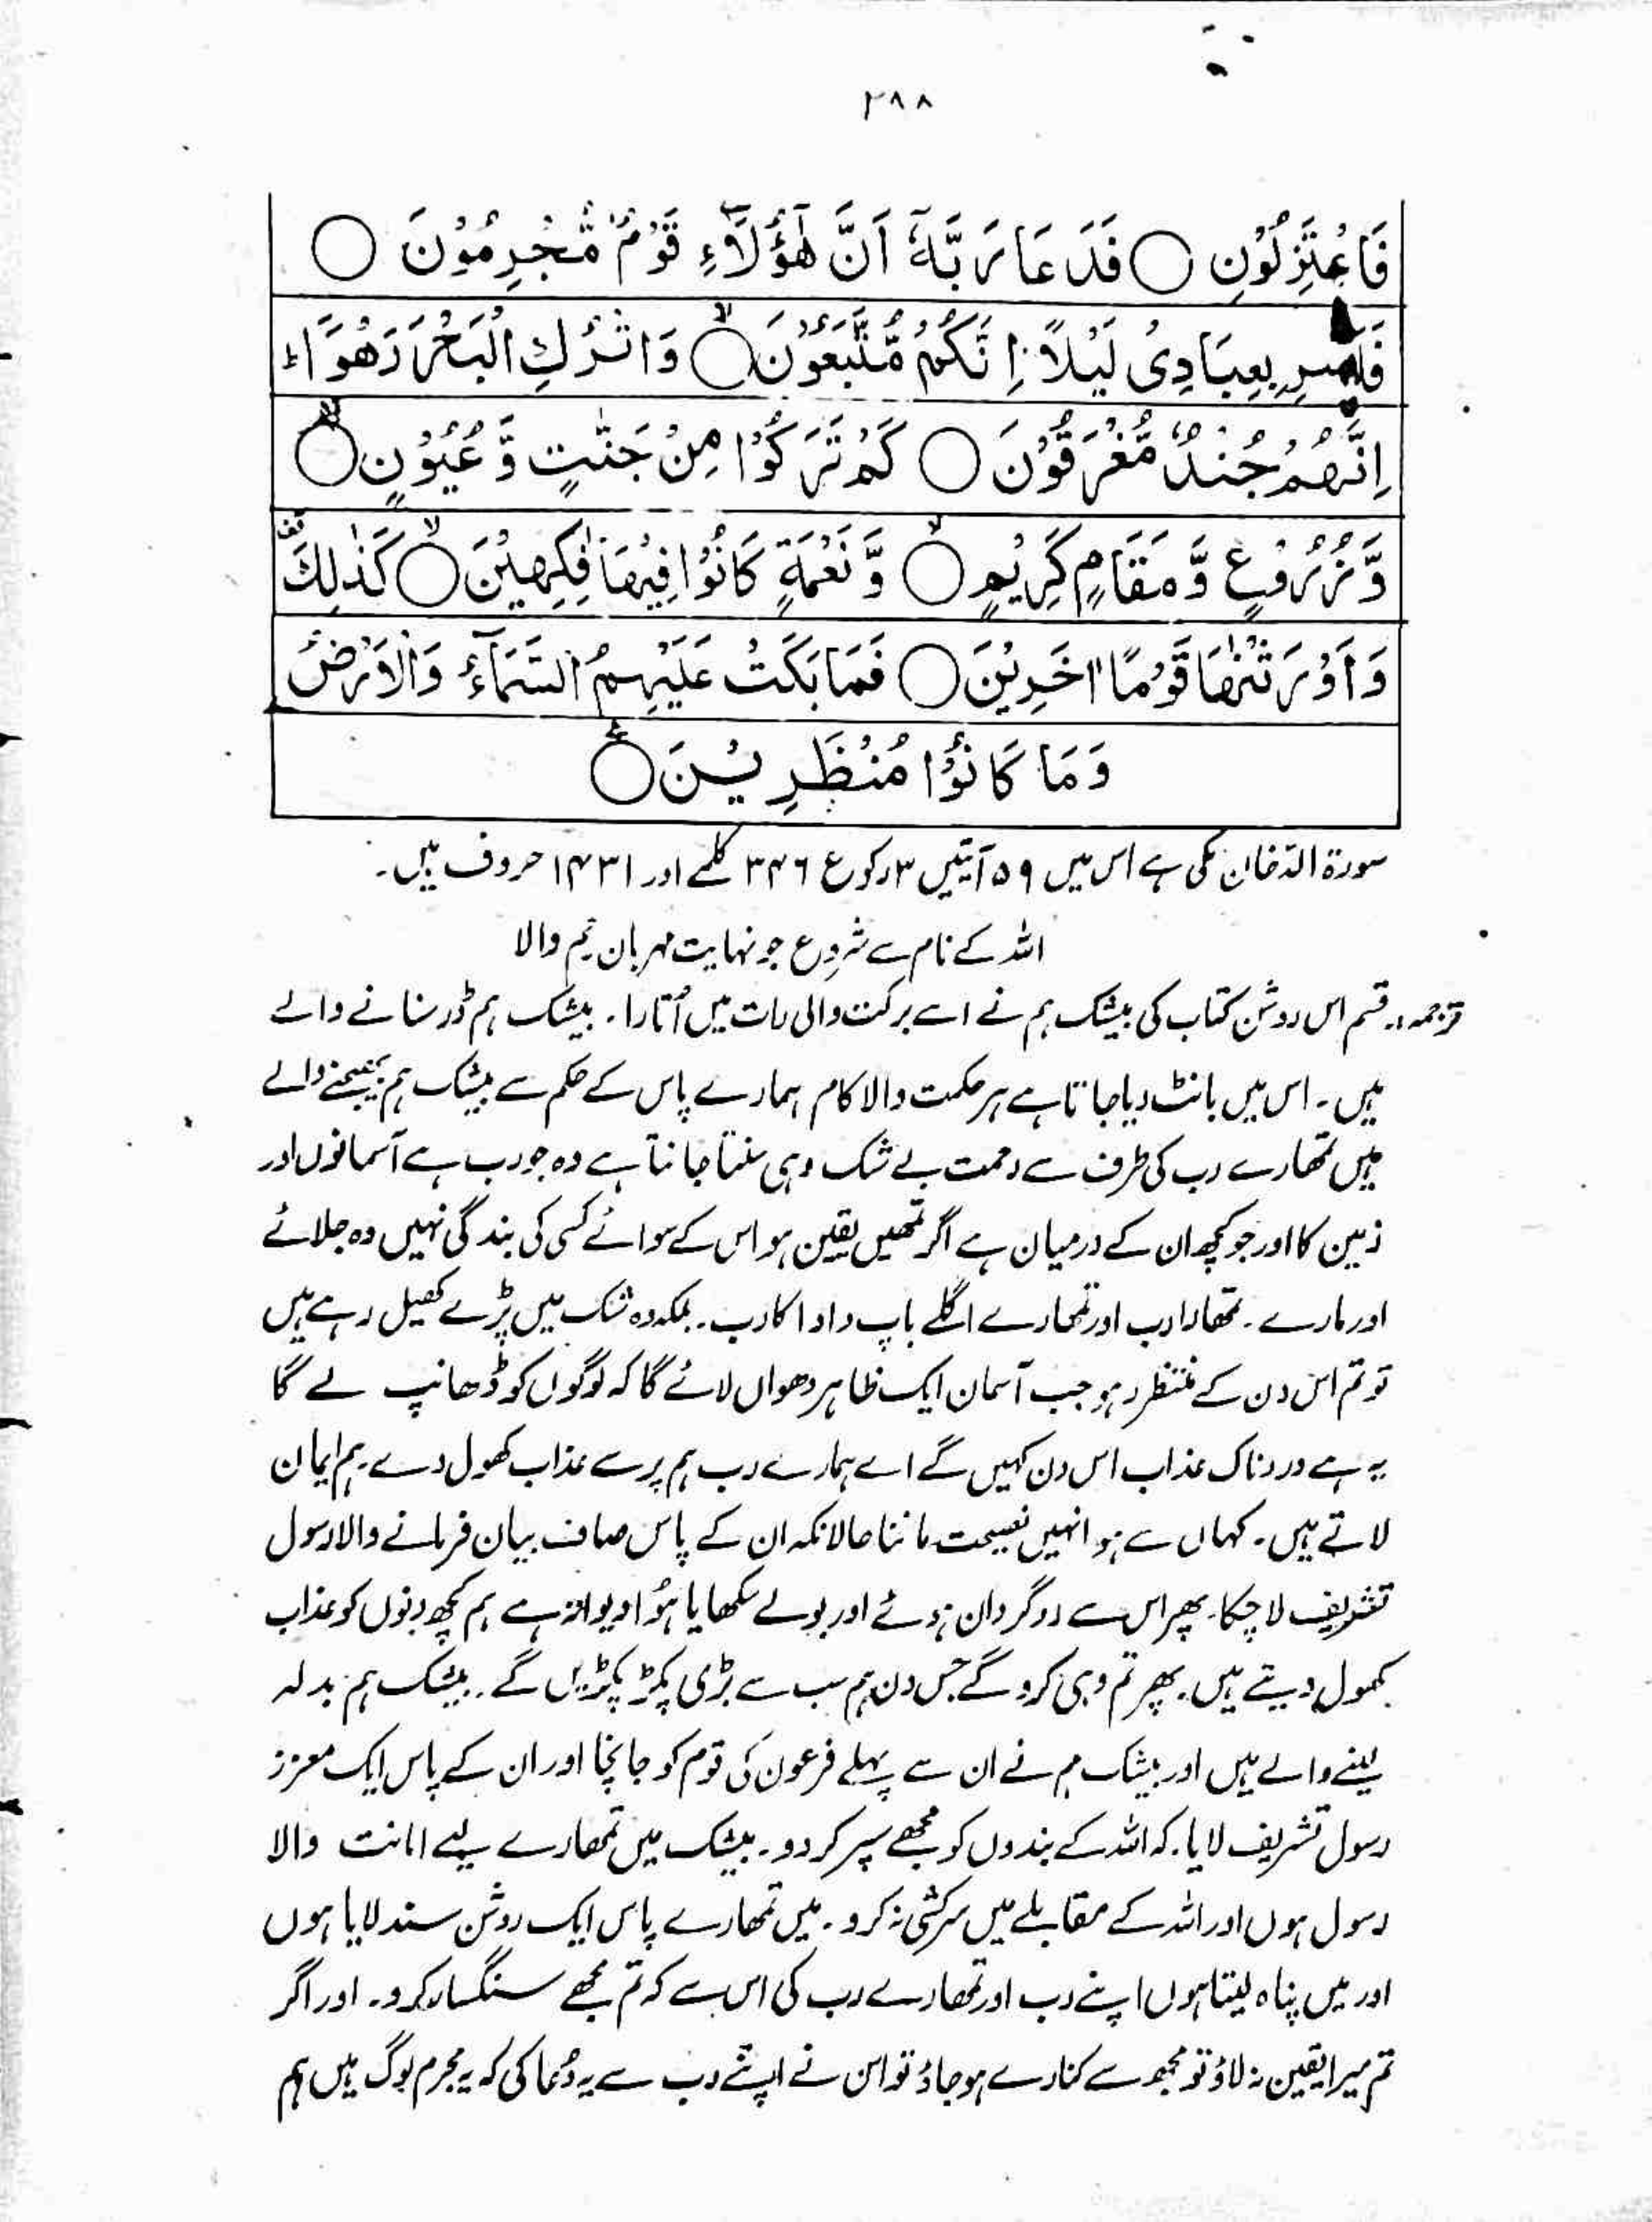 ۲۸۸
فَاعْتَزِلُوْنِ ○ فَدَعَا رَبَّهٗٓ اَنَّ هٰٓؤُلَآءِ قَوْمٌ مُّجْرِمُوْنَ ○
فَاَسْرِ بِعِبَادِيْ لَيْلًا اِنَّكُمْ مُّتَّبَعُوْنَ ○ۙ وَاتْرُكِ الْبَحْرَ رَهْوًا ؕ
اِنَّهُمْ جُنْدٌ مُّغْرَقُوْنَ ○ كَمْ تَرَكُوْا مِنْ جَنّٰتٍ وَّعُيُوْنٍ ○ۙ
وَّزُرُوْعٍ وَّمَقَامٍ كَرِيْمٍ ○ۙ وَّنَعْمَةٍ كَانُوْا فِيْهَا فٰكِهِيْنَ ○ۙ كَذٰلِكَ قف
وَاَوْرَثْنٰهَا قَوْمًا اٰخَرِيْنَ ○ فَمَا بَكَتْ عَلَيْهِمُ السَّمَآءُ وَالْاَرْضُ
وَمَا كَانُوْا مُنْظَرِيْنَ ○ ع
سورۃ الدّخان مکی ہے اس میں ۵۹ آیتیں ۳ رکوع ۳۴۶ کلمے اور ۱۴۳۱ حروف ہیں۔
اللہ کے نام سے شروع جو نہایت مہربان رحم والا
ترجمہ:۔ قسم اس روشن کتاب کی بیشک ہم نے اسے برکت والی رات میں اُتارا۔ بیشک ہم ڈر سنانے والے
ہیں۔ اس میں بانٹ دیا جاتا ہے ہر حکمت والا کام ہمارے پاس کے حکم سے بیشک ہم بھیجنے والے
ہیں تمھارے رب کی طرف سے رحمت بے شک وہی سنتا جانتا ہے وہ جو رب ہے آسمانوں اور
زمین کا اور جو کچھ ان کے درمیان ہے اگر تمھیں یقین ہو اس کے سوائے کسی کی بندگی نہیں وہ جلائے
اور مارے۔ تمھارا رب اور تمھارے اگلے باپ دادا کا رب۔ بلکہ وہ شک میں پڑے کھیل رہے ہیں
تو تم اس دن کے منتظر رہو جب آسمان ایک ظاہر دھواں لائے گا کہ لوگوں کو ڈھانپ لے گا
یہ ہے دردناک عذاب اس دن کہیں گے اے ہمارے رب ہم پر سے عذاب کھول دے۔ ہم ایمان
لاتے ہیں۔ کہاں سے ہو انہیں نصیحت ماننا حالانکہ ان کے پاس صاف بیان فرمانے والا رسول
تشریف لا چکا۔ پھر اس سے روگرداں ہوئے اور بولے سکھایا ہُوا دیوانہ ہے ہم کچھ دنوں کو عذاب
کھول دیتے ہیں۔ پھر تم وہی کرو گے جس دن ہم سب سے بڑی پکڑ پکڑیں گے۔ بیشک ہم بدلہ
لینے والے ہیں اور بیشک ہم نے ان سے پہلے فرعون کی قوم کو جانچا اور ان کے پاس ایک معزز
رسول تشریف لایا۔ کہ اللہ کے بندوں کو مجھے سپر کر دو۔ بیشک میں تمھارے لیے امانت والا
رسول ہوں اور اللہ کے مقابلے میں سرکشی نہ کرو۔ میں تمھارے پاس ایک روشن سند لایا ہوں
اور میں پناہ لیتا ہوں اپنے رب اور تمھارے رب کی اس سے کہ تم مجھے سنگسار کرو۔ اور اگر
تم میرا یقین نہ لاؤ تو مجھ سے کنارے ہو جاؤ تو اس نے اپنے رب سے یہ دُعا کی کہ یہ مجرم لوگ ہیں ہم